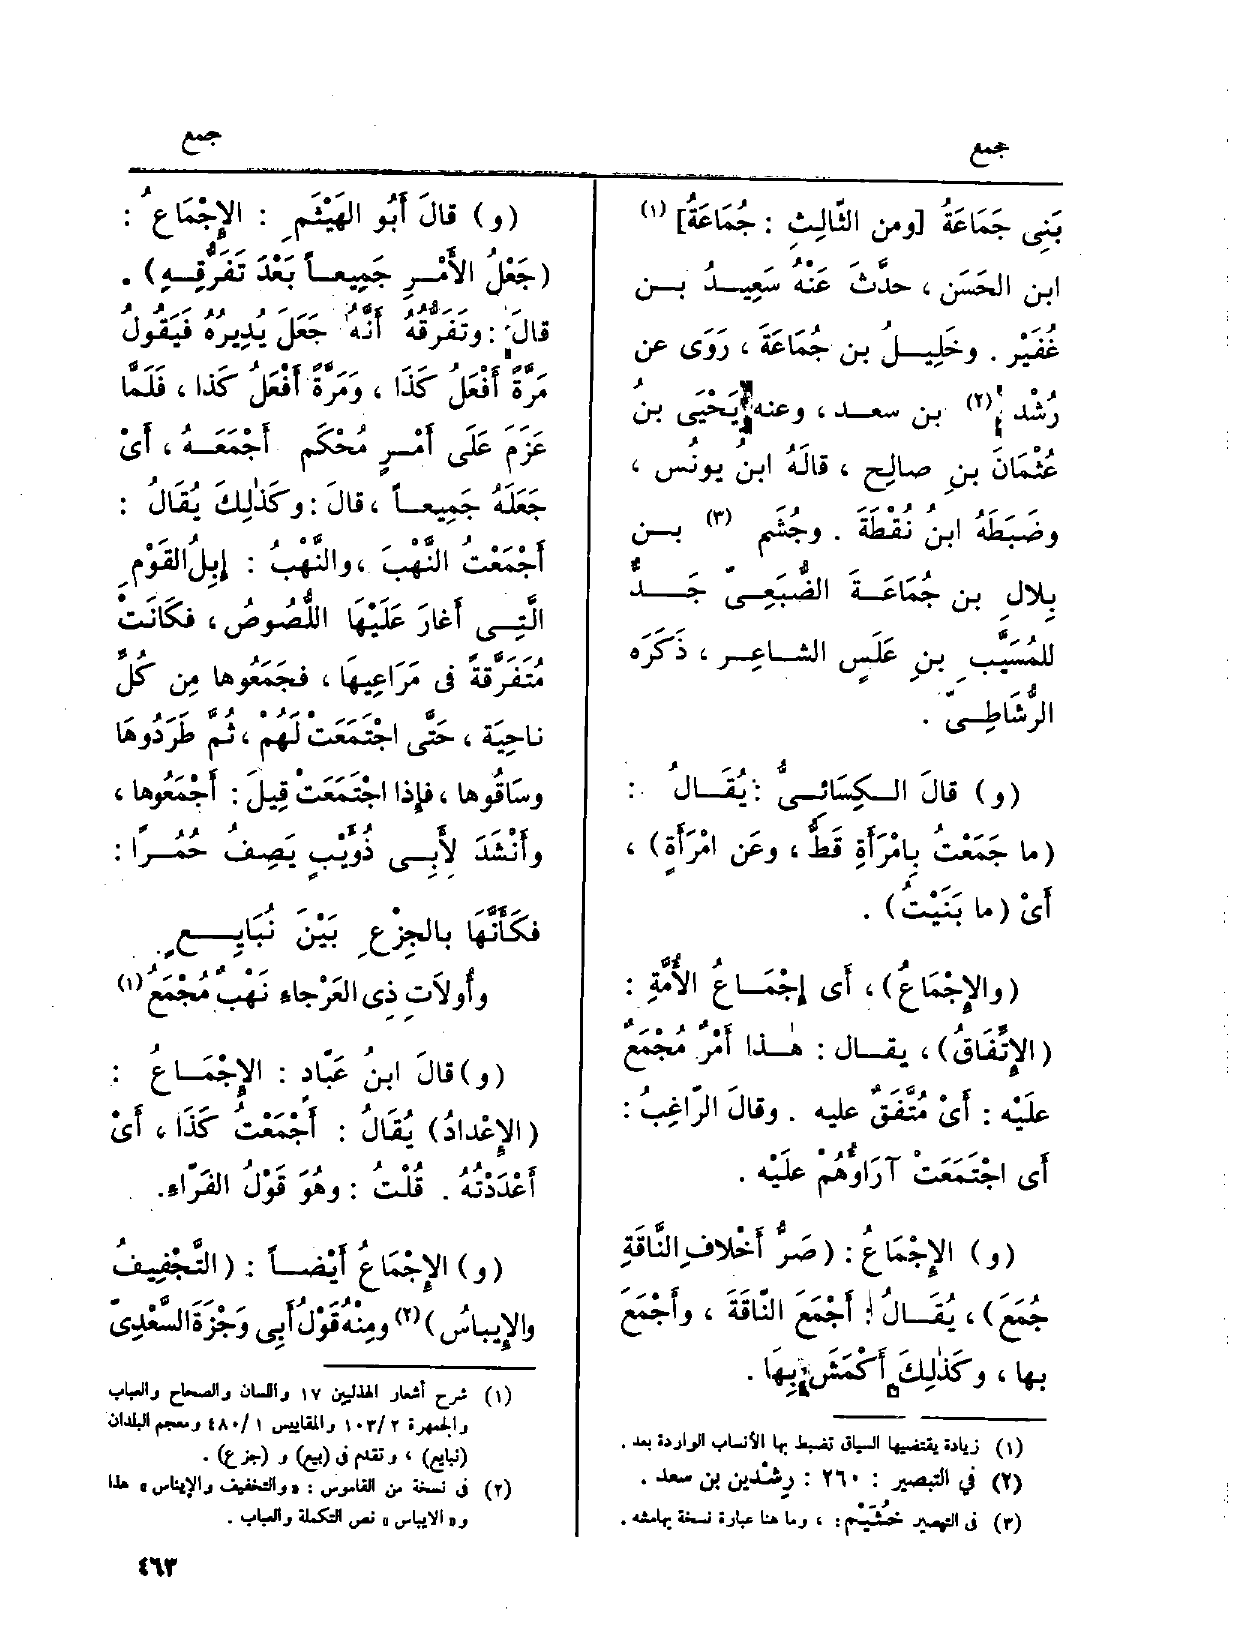 جمع
جمع
بَنِى جَمَاعَةُ [ومن الثّالِثِ : جُمَاعَةُ] (١)
ابن الحَسَن ، حدَّثَ عَنْهُ سَعِيدُ بن
غُفَيْر . وخَلِيلُ بن جُمَاعَةَ ، رَوَى عن
رُشْد (٢) بن سعد ، وعنه يَحْيَى بن
عُثْمَانَ بنِ صالِح ، قالَهُ ابنُ يونُس ،
وضَبَطَهُ ابنُ نُقْطَةَ . وجُشَم (٣) بن
بِلالِ بن جُمَاعَةَ الضُّبَعِىّ جَدُّ
للمُسَيَّبِ بنِ عَلَسٍ الشاعِر ، ذَكَرَه
الرُّشَاطِىّ .
(و) قالَ الكِسَائىُّ : يُقَالُ :
(ما جَمَعْتُ بِامْرَأَةٍ قَطُّ ، وعَن امْرَأَةٍ) ،
أَىْ (ما بَنَيْتُ) .
(والإِجْمَاعُ) ، أَى إِجْمَاعُ الأُمَّةِ :
(الإِتِّفَاقُ) ، يقال : هٰذا أَمْرٌ مُجْمَعٌ
علَيْه : أَىْ مُتَّفَقٌ عليه . وقالَ الرّاغِبُ :
أَى اجْتَمَعَتْ آرَاؤُهُمْ علَيْه .
(و) الإِجْمَاعُ : (صَرُّ أَخْلافِ النَّاقَةِ
جُمَعَ) ، يُقَالُ : أَجْمَعَ النّاقَةَ ، وأَجْمَعَ
بها ، وكَذٰلِكَ أَكْمَشَ بِهَا .
(١) زيادة يقتضيها السياق تضبط بها الأنساب الواردة بعد .
(٢) في التبصير : ٢٦٠ : رِشْدين بن سعد .
(٣) فى التبصير خُثَيْم : ، وما هنا عبارة نسخة بهامشه .
(و) قالَ أَبُو الهَيْثَمِ : الإِجْمَاعُ :
(جَعْلُ الأَمْرِ جَمِيعاً بَعْدَ تَفَرُّقِهِ) .
قالَ : وتَفَرُّقُهُ أَنَّهُ جَعَلَ يُدِيرُهُ فيَقُولُ
مَرَّةً أَفْعَلُ كَذَا ، ومَرَّةً أَفْعَلُ كَذا ، فَلَمَّا
عَزَمَ عَلَى أَمْرٍ مُحْكَم أَجْمَعَهُ ، أَىْ
جَعَلَهُ جَمِيعاً ، قالَ : وكَذٰلِكَ يُقَالُ :
أَجْمَعْتُ النَّهْبَ ، والنَّهْبُ : إِبِلُ القَوْمِ
الَّتِى أَغارَ عَلَيْهَا اللُّصُوصُ ، فكَانَتْ
مُتَفَرِّقَةً فى مَرَاعِيهَا ، فجَمَعُوها مِن كُلِّ
ناحِيَة ، حَتَّى اجْتَمَعَتْ لَهُمْ ، ثُمَّ طَرَدُوهَا
وسَاقُوها ، فإِذا اجْتَمَعَتْ قِيلَ : أَجْمَعُوها ،
وأَنْشَدَ لأَبِى ذُؤَيْبٍ يَصِفُ حُمُرًا :
فكَأَنَّهَا بالجِزْعِ بَيْنَ نُبَايِعٍ
وأُولاَتِ ذِى العَرْجاءِ نَهْبٌ مُجْمَعُ (١)
(و) قالَ ابنُ عَبّادٍ : الإِجْمَاعُ :
(الإِعْدادُ) يُقَالُ : أَجْمَعْتُ كَذَا ، أَىْ
أَعْدَدْتُهُ . قُلْتُ : وهُوَ قَوْلُ الفَرّاءِ.
(و) الإِجْمَاعُ أَيْضاً : (التَّجْفِيفُ
والإِيباسُ) (٢) ومِنْهُ قَوْلُ أَبِى وَجْزَةَ السَّعْدِىّ
(١) شرح أشعار الهذليين ١٧ واللسان والصحاح والعباب
والجمهرة ٢/ ١٠٣ والمقاييس ١ /٤٨٠ ومعجم البلدان
(نبايع) ، وتقدم فى (بيع) و (جزع) .
(٢) فى نسخة من القاموس : «والتخفيف والإيناس» هذا
و«الايباس» نص التكملة والعباب .
٤٦٣